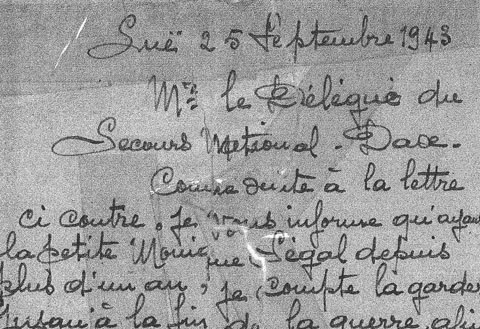 Suë 25 Septembre 1943
Mr le Délégué du
Secours National - Dax.
Comme suite à la lettre
ci contre, je vous informe qu'ayant
la petite Monique Ségal depuis
plus d'un an, je compte la garder
jusqu'à la fin de la guerre